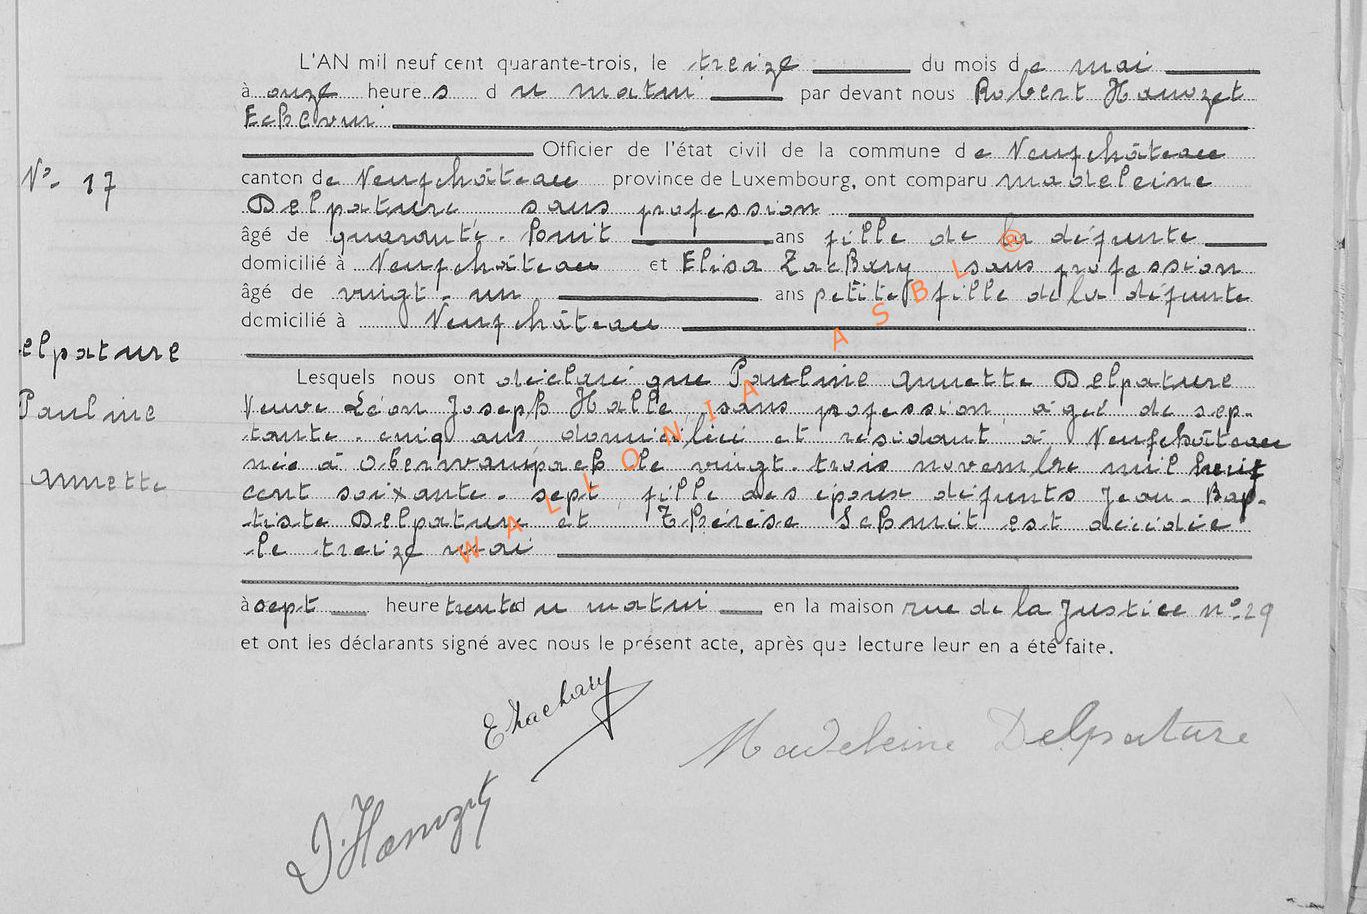 L'AN mil neuf cent quarante-trois, le treize du mois de mai
à onze heures du matin par devant nous Robert Hanozet
Echevin
Officier de l'état civil de la commune de Neufchâteau
N°- 17
canton de Neufchâteau province de Luxembourg, ont comparu Madeleine
Delpature sans profession
âgé de quarante-huit ans fille de la défunte
domicilié à Neufchâteau et Elisa Zachary sans profession
âgé de vingt-un ans petite fille de la défunte
domicilié à Neufchâteau
elpature
Pauline
Annette
Lesquels nous ont déclaré que Pauline Annette Delpature
Veuve Léon Joseph Halle, sans profession, âgée de sep-
tante-cinq ans domiciliée et résidant à Neufchâteau
née à Oberwampach le vingt-trois novembre mil huit
cent soixante-sept, fille des époux défunts Jean-Bap-
tiste Delpature et Thérèse Schmit est décédée
le treize mai
à sept heure trente du matin en la maison rue de la Justice n°-29
et ont les déclarants signé avec nous le présent acte, après que lecture leur en a été faite.
EZachary
Madeleine Delpature
Hanozet
WALLONIA ASBL @